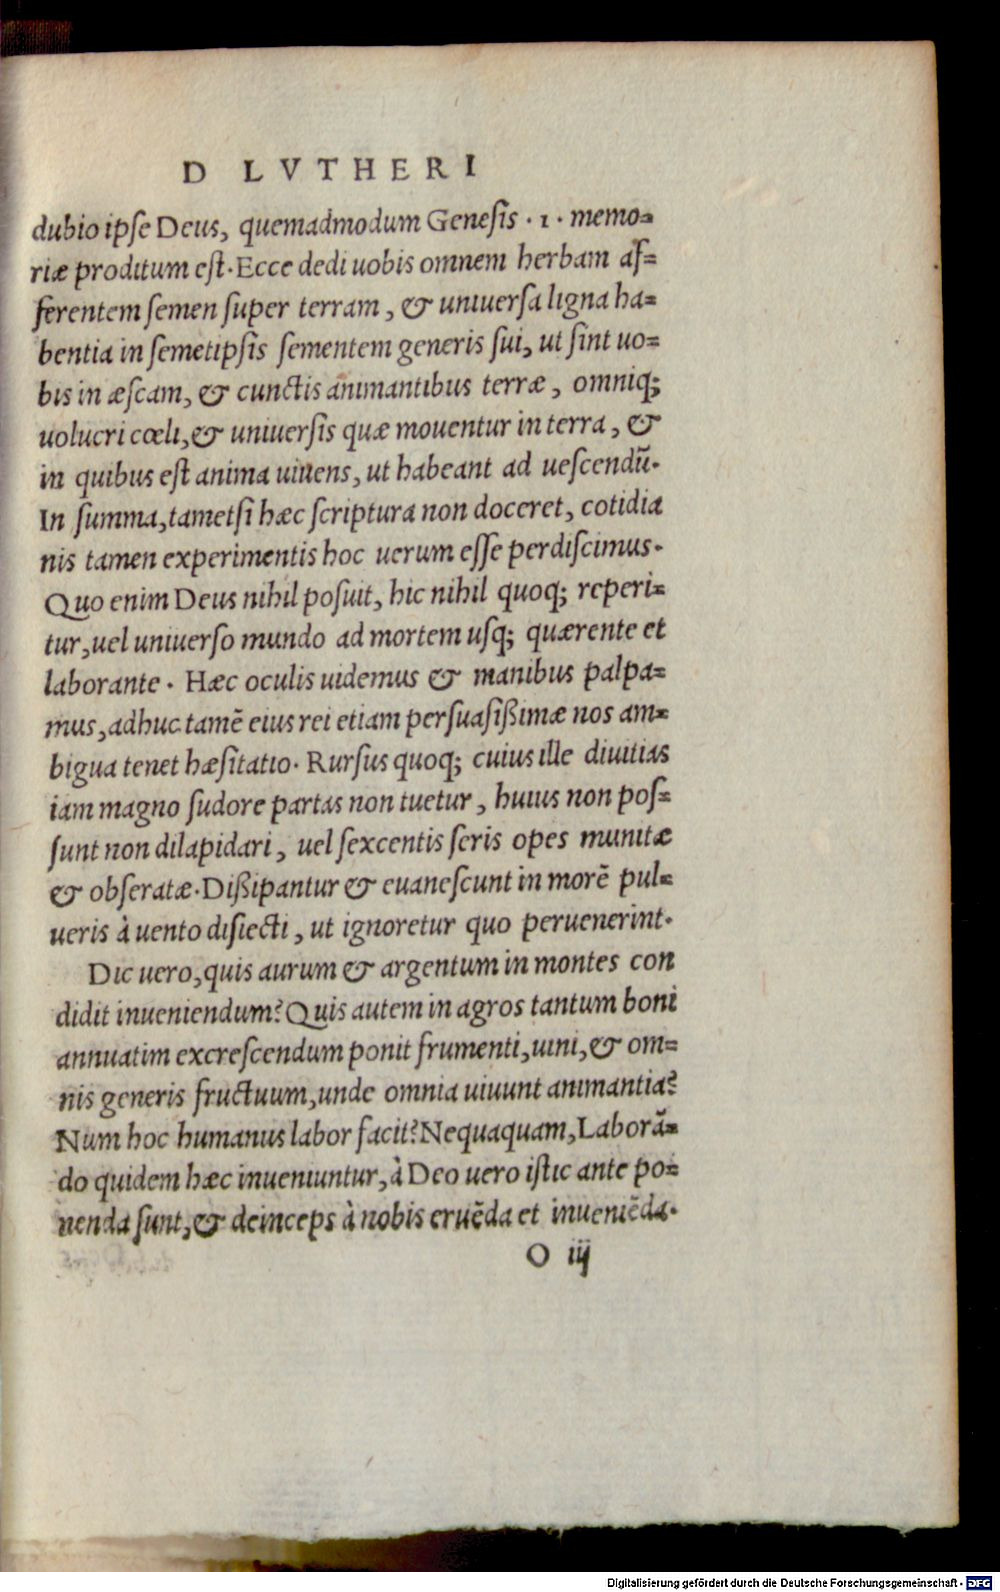 D LVTHERI
dubio ipſe Deus, quemadmodum Geneſis · 1 · memo=
riæ proditum eſt·Ecce dedi uobis omnem herbam aſ=
ferentem ſemen ſuper terram, & uniuerſa ligna ha=
bentia in ſemetipſis ſementem generis ſui, ut ſint uo=
bis in æſcam, & cunctis animantibus terræ, omniq;
uolucri cœli,& uniuerſis quæ mouentur in terra, &
in quibus eſt anima uiuens, ut habeant ad ueſcendū·
In ſumma,tametſi hæc ſcriptura non doceret, cotidia
nis tamen experimentis hoc uerum eſſe perdiſcimus·
Quo enim Deus nihil poſuit, hic nihil quoq; reperi=
tur,uel uniuerſo mundo ad mortem uſq; quærente et
laborante · Hæc oculis uidemus & manibus palpa=
mus,adhuc tamē eius rei etiam perſuaſißimæ nos am=
bigua tenet hæſitatio· Rurſus quoq; cuius ille diuitias
iam magno ſudore partas non tuetur, huius non poſ=
ſunt non dilapidari, uel ſexcentis ſeris opes munitæ
& obſeratæ·Dißipantur & euaneſcunt in morē pul=
ueris à uento diſiecti, ut ignoretur quo peruenerint·
Dic uero,quis aurum & argentum in montes con
didit inueniendum? Quis autem in agros tantum boni
annuatim excreſcendum ponit frumenti,uini,& om=
nis generis fructuum,unde omnia uiuunt animantia?
Num hoc humanus labor facit? Nequaquam,Laborā=
do quidem hæc inueniuntur,à Deo uero iſtic ante po=
nenda ſunt,& deinceps à nobis eruēda et inueniēda·
O iij
Digitalisierung gefördert durch die Deutsche Forschungsgemeinschaft - DFG